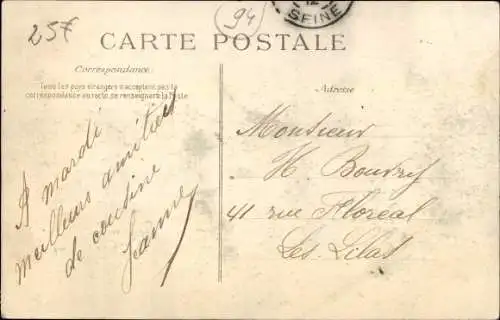 25F
94
SEINE
CARTE POSTALE
Correspondance
Tous les pays étrangers n'acceptent pas la
correspondance au recto, se renseigner à la Poste
Adresse
A mardi
meilleurs amitiés
de cousine
Jeanne
Monsieur
H. Bouvry
41 rue Floreal
Les Lilas